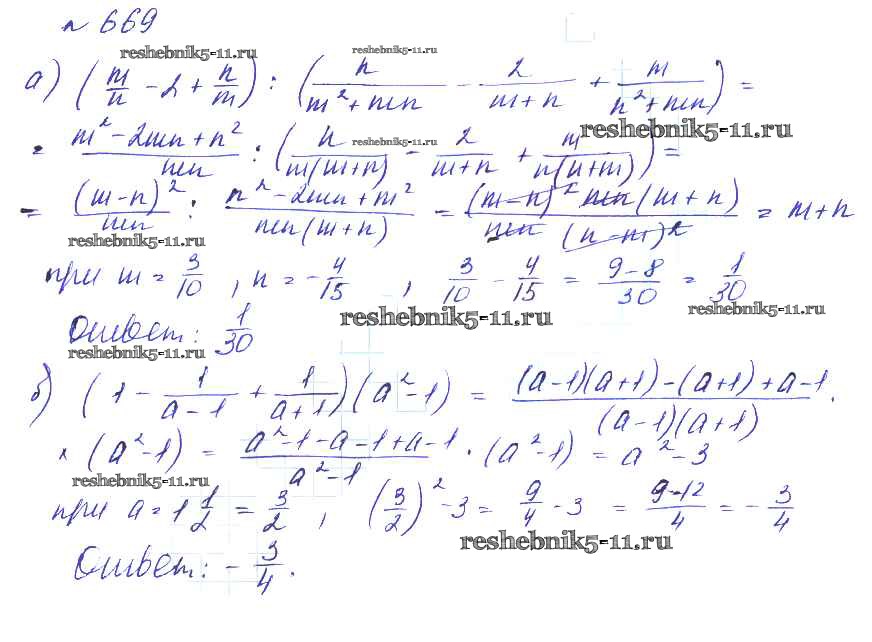 № 669
reshebnik5-11.ru reshebnik5-11.ru
а) (m/n - 2 + n/m) : (n/(m² + mn) - 2/(m + n) + m/(n² + mn)) =
reshebnik5-11.ru
= (m² - 2mn + n²)/mn : (n/(m(m + n)) - 2/(m + n) + m/(n(n + m))) =
reshebnik5-11.ru
= (m - n)²/mn : (n² - 2mn + m²)/(mn(m + n)) = ((m - n)² mn(m + n))/(mn (n - m)²) = m + n
reshebnik5-11.ru
при m = 3/10, n = -4/15, 3/10 - 4/15 = (9 - 8)/30 = 1/30
reshebnik5-11.ru reshebnik5-11.ru
Ответ: 1/30
reshebnik5-11.ru
б) (1 - 1/(a - 1) + 1/(a + 1))(a² - 1) = ((a - 1)(a + 1) - (a + 1) + a - 1)/((a - 1)(a + 1)) ·
× (a² - 1) = (a² - 1 - a - 1 + a - 1)/(a² - 1) · (a² - 1) = a² - 3
reshebnik5-11.ru
при a = 1 1/2 = 3/2, (3/2)² - 3 = 9/4 - 3 = (9 - 12)/4 = -3/4
reshebnik5-11.ru
Ответ: -3/4.